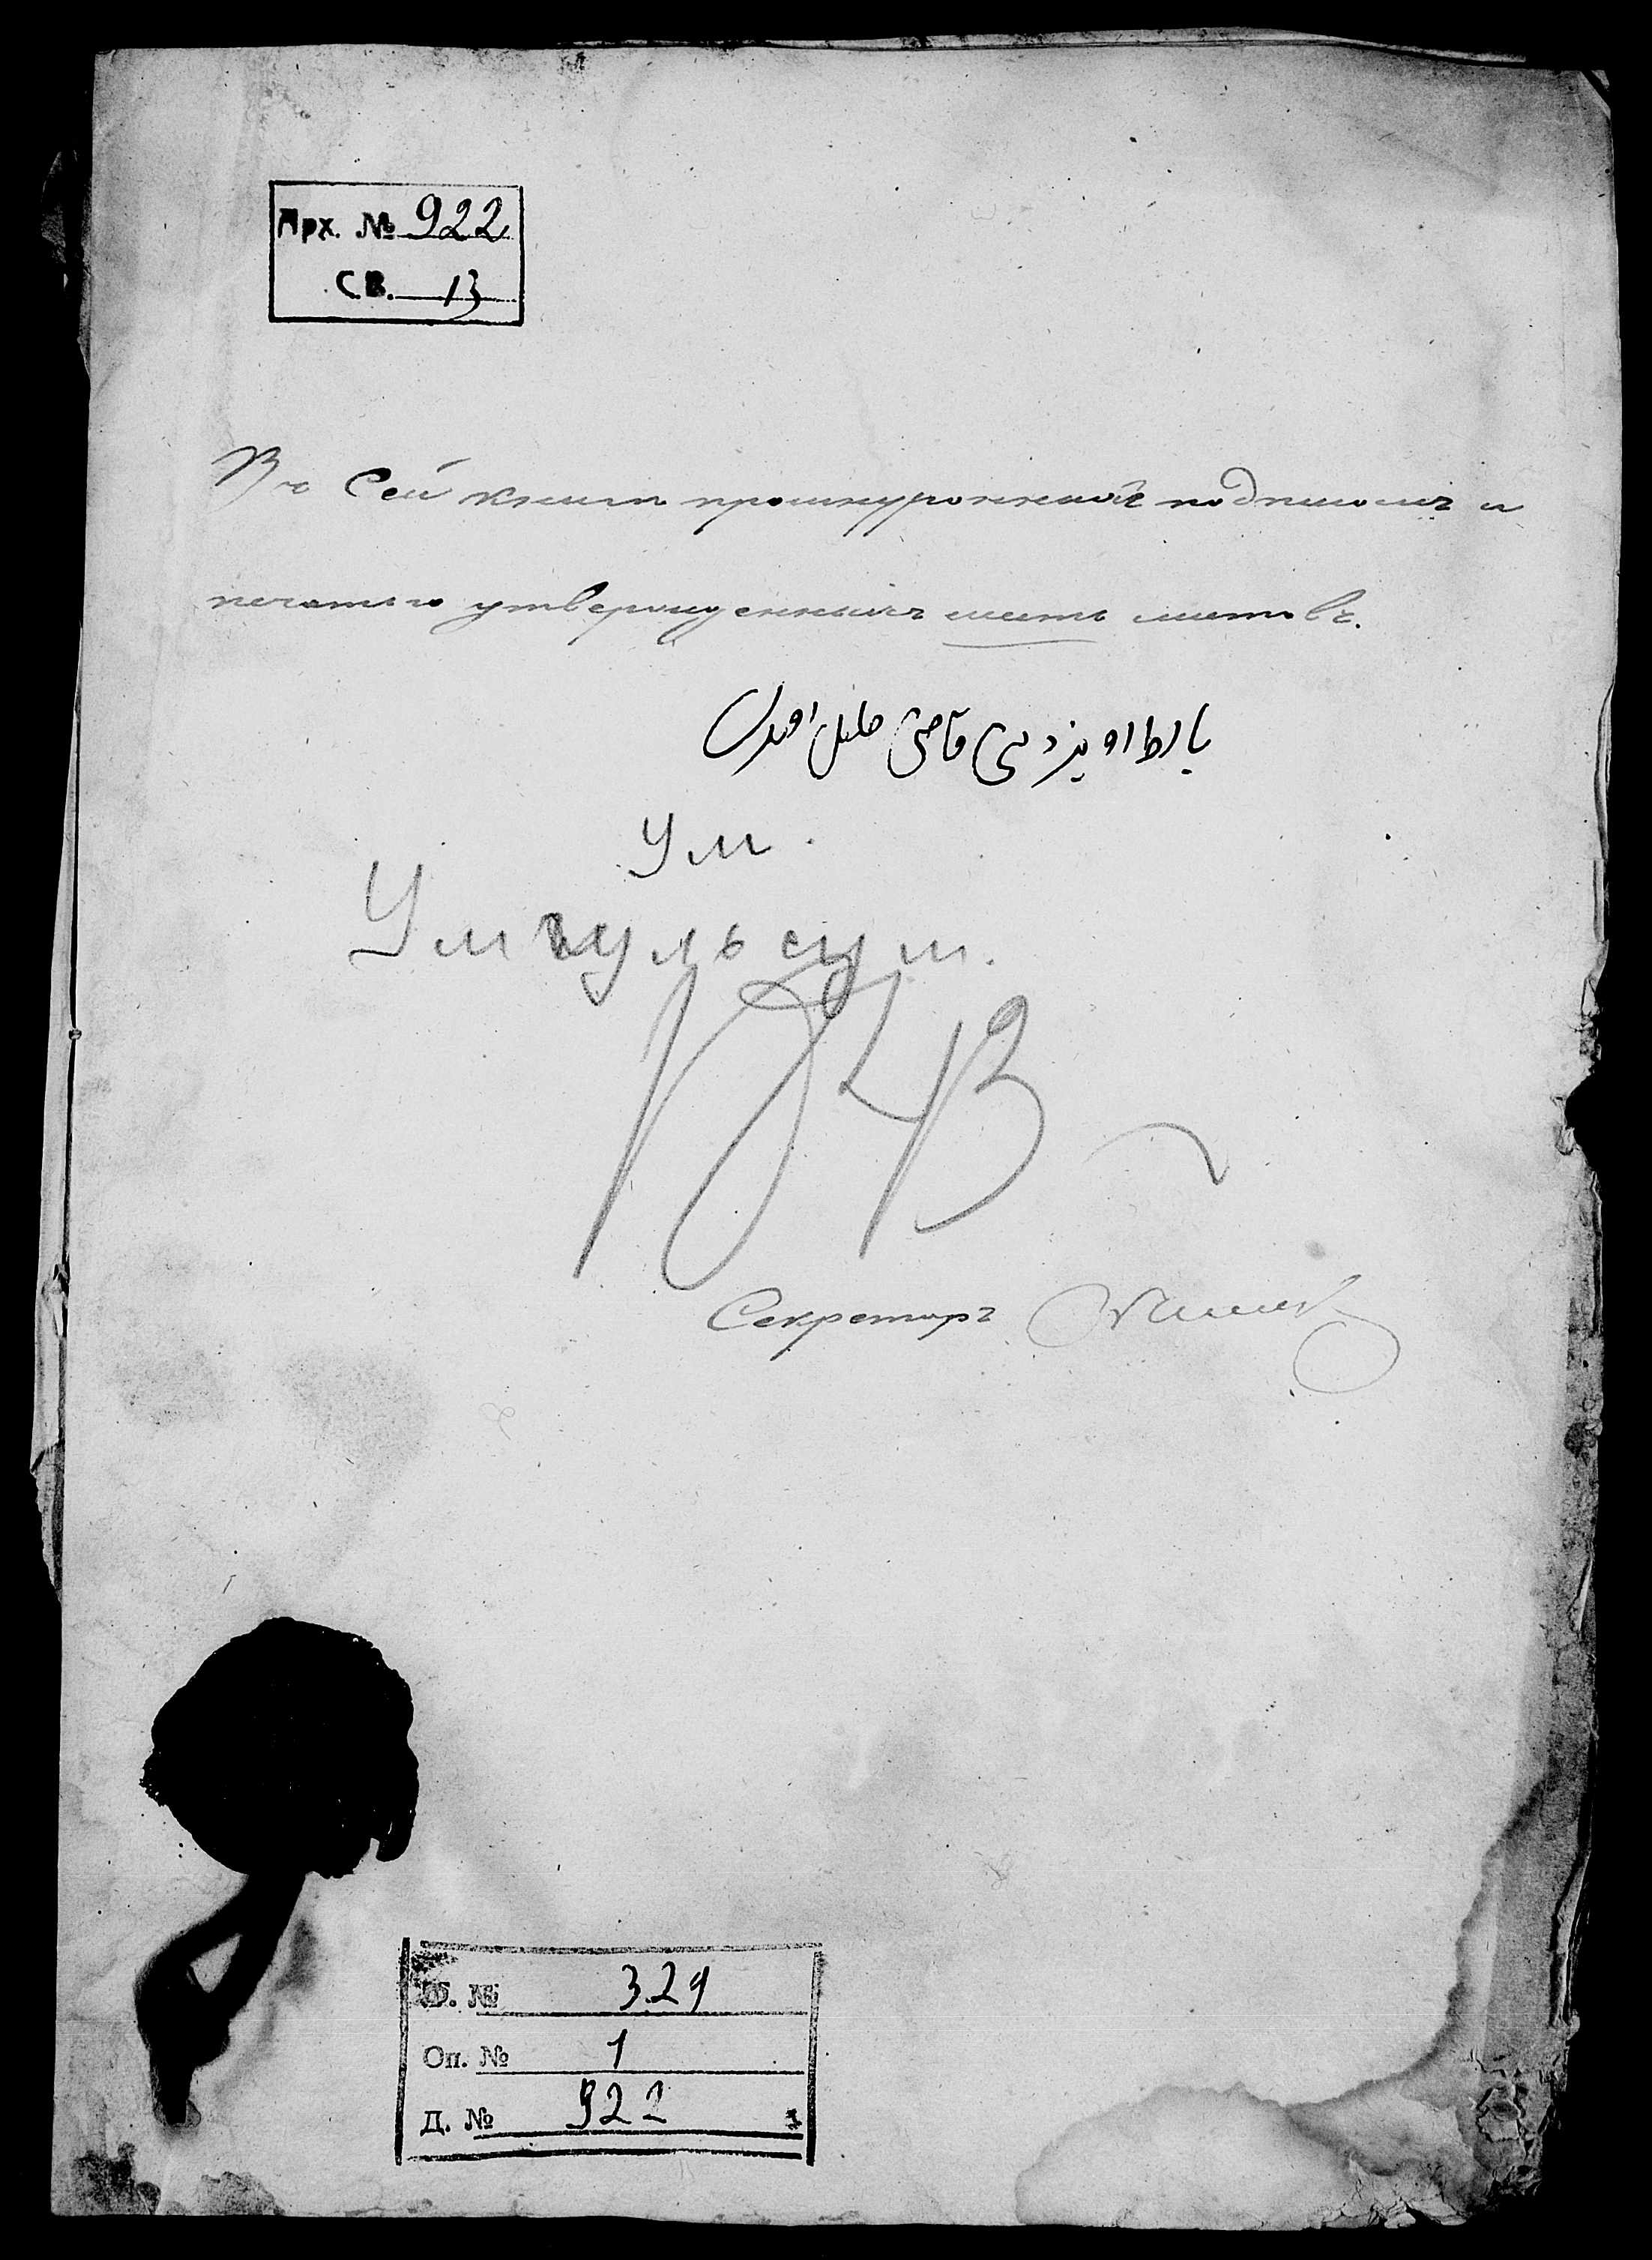 Арх. № 922
СВ. 13
Въ Сей книги прошнурованной подписомъ и
печатью утвержденнымъ шесть листовъ.
قاضى خليل
Ум.
Умгульсум.
1843
Секретарь
Ф. № 329
Оп. № 1
Д. № 922